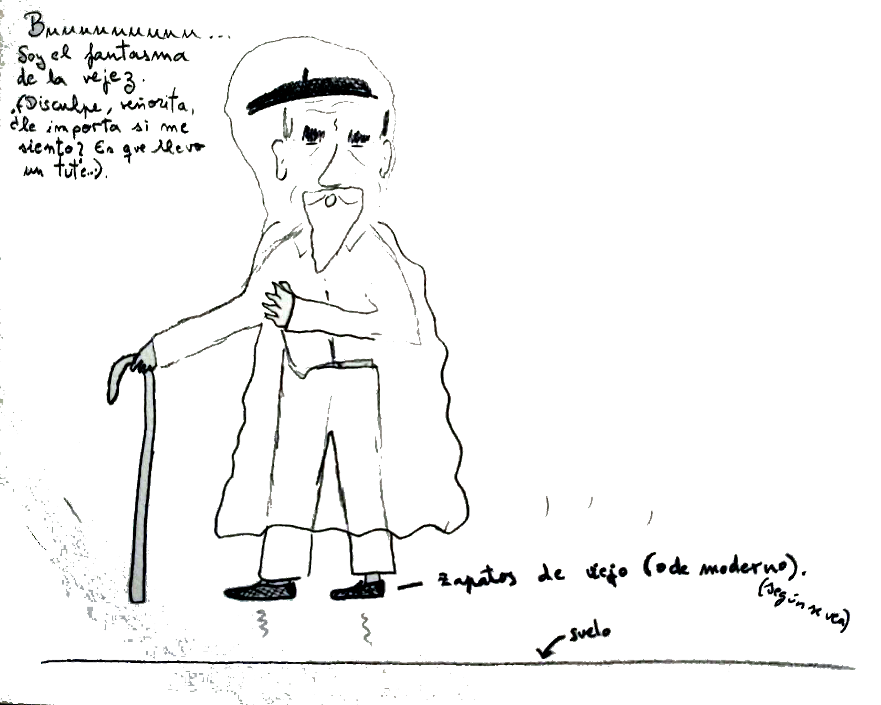 Buuuuuuuuuu...
Soy el fantasma
de la vejez.
(Disculpe, señorita,
¿le importa si me
siento? Es que llevo
un tute...).
zapatos de viejo (o de moderno).
(según se vea)
suelo